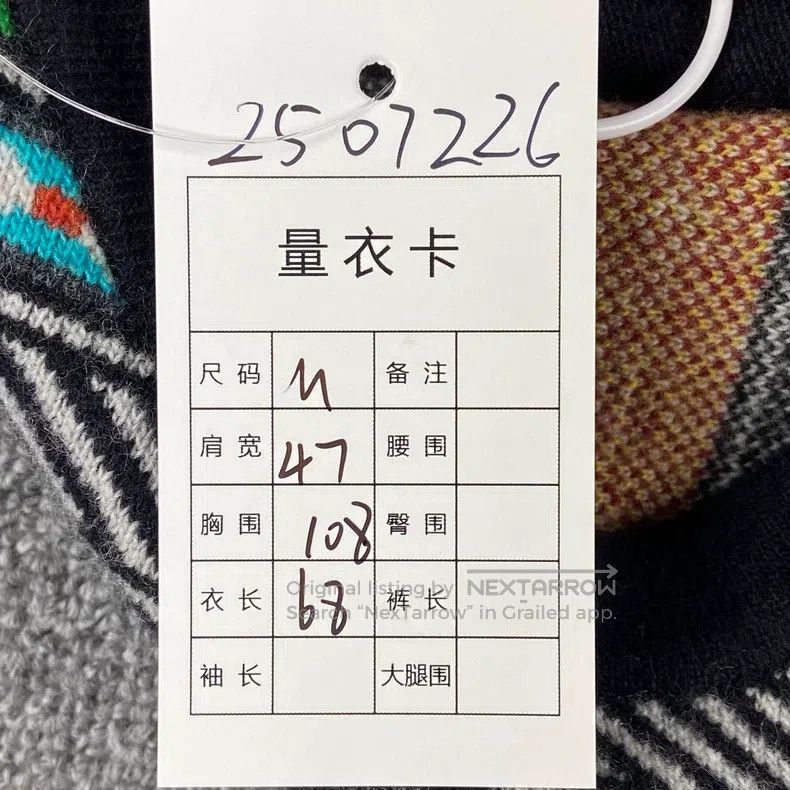 2507226
量衣卡
尺码 M 备注
肩宽 47 腰围
胸围 108 臀围
衣长 68 裤长
袖长 大腿围
Original listing by NEXTARROW
Search “NexTarrow” in Grailed app.